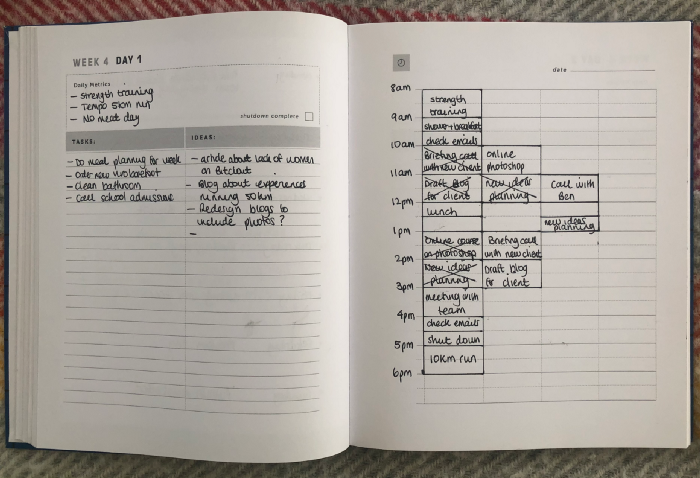 WEEK 4 DAY 1
Daily Metrics
- Strength training
- Tempo 5km run
- No meat day
shutdown complete
TASKS:
- Do meal planning for week
- Order new
- Clean bathroom
- Call school admissions
IDEAS:
- article about lack of women
on Bitclout
- Blog about experience
running 50km
- Redesign blogs to
include photos?
-
date
8am
strength
training
9am
shower + breakfast
check emails
10am
Briefing call
with new client
online
photoshop
11am
Draft Blog
for client
new ideas
planning
Call with
Ben
12pm
lunch
new ideas
planning
1pm
Online course
on photoshop
Briefing call
with new client
2pm
New ideas
planning
Draft blog
for client
3pm
meeting with
team
4pm
check emails
shut down
5pm
10km run
6pm